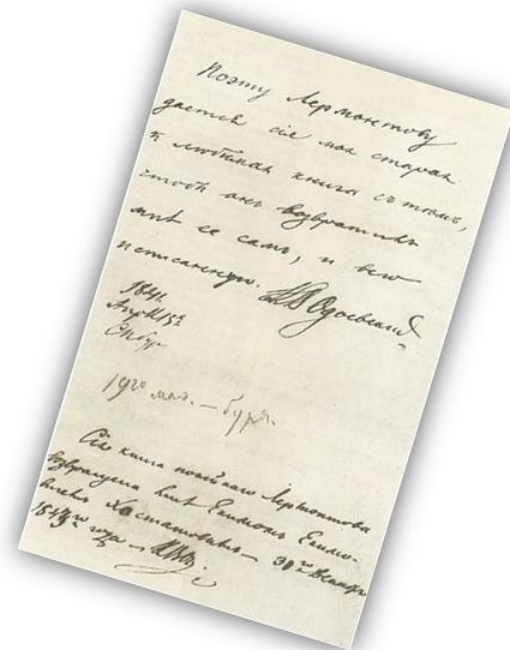 Поэту Лермонтову
дается сiя моя старая
и любимая книга съ тѣмъ,
чтобы онъ возвратилъ
мнѣ ее самъ, и всю
исписанную. К В Одоевскiй
1841.
Апрѣля 13е
СПбург
19го мая. — буря.
Сiя книга покойнаго Лермонтова
возвращена мнѣ Екимомъ Екимо-
вичемъ Хостатовымъ — 30го Января
1843го года